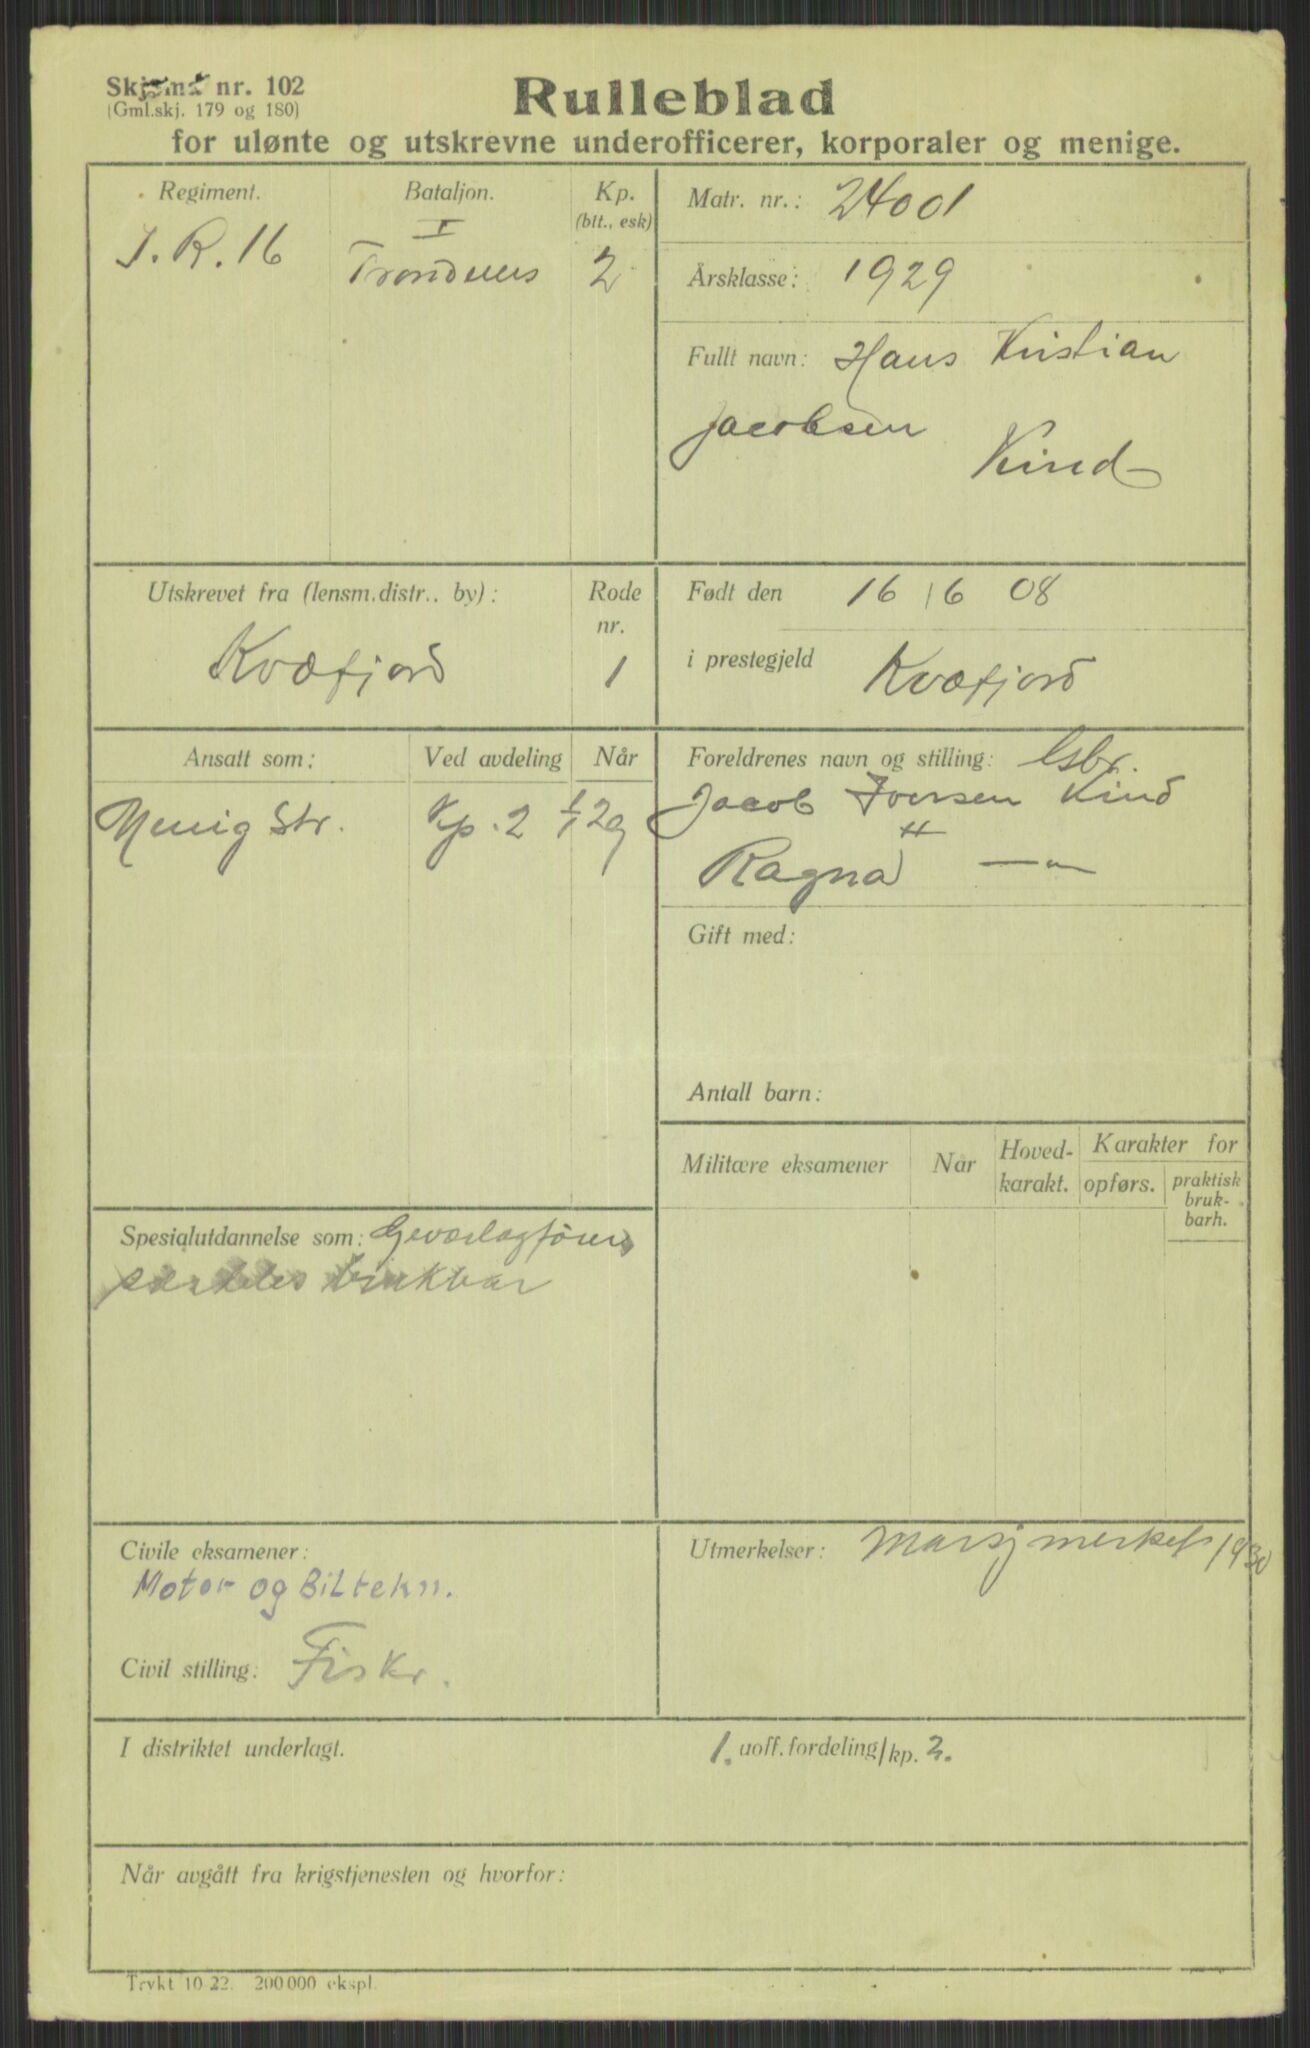 Skjema nr. 102
(Gml.skj. 179 og 180)
Rulleblad
for ulønte og utskrevne underofficerer, korporaler og menige.
Regiment. Bataljon. Kp. (blt., esk)
J. R. 16 I Trondenes 2
Matr. nr.: 24001
Årsklasse: 1929
Fullt navn: Hans Kristian
Jacobsen
Kind
Utskrevet fra (lensm.distr.. by): Rode nr.
Kvæfjord 1
Født den 16/6 08
i prestegjeld Kvæfjord
Ansatt som: Ved avdeling Når
Menig Str. Kp. 2 1/1 29
Foreldrenes navn og stilling: Gsbr.
Jacob Iversen Kind
Ragna — " —
Gift med:
Antall barn:
Militære eksamener Når Hoved-karakt. Karakter for
opførs. praktisk bruk-barh.
Spesialutdannelse som: Geværlagfører
særdeles brukbar
Civile eksamener:
Motor- og Biltekn.
Civil stilling: Fiskr.
Utmerkelser: Marsjmerket 1930
I distriktet underlagt. 1. uoff. fordeling/kp. 2.
Når avgått fra krigstjenesten og hvorfor:
Trykt 10-22. 200 000 ekspl.